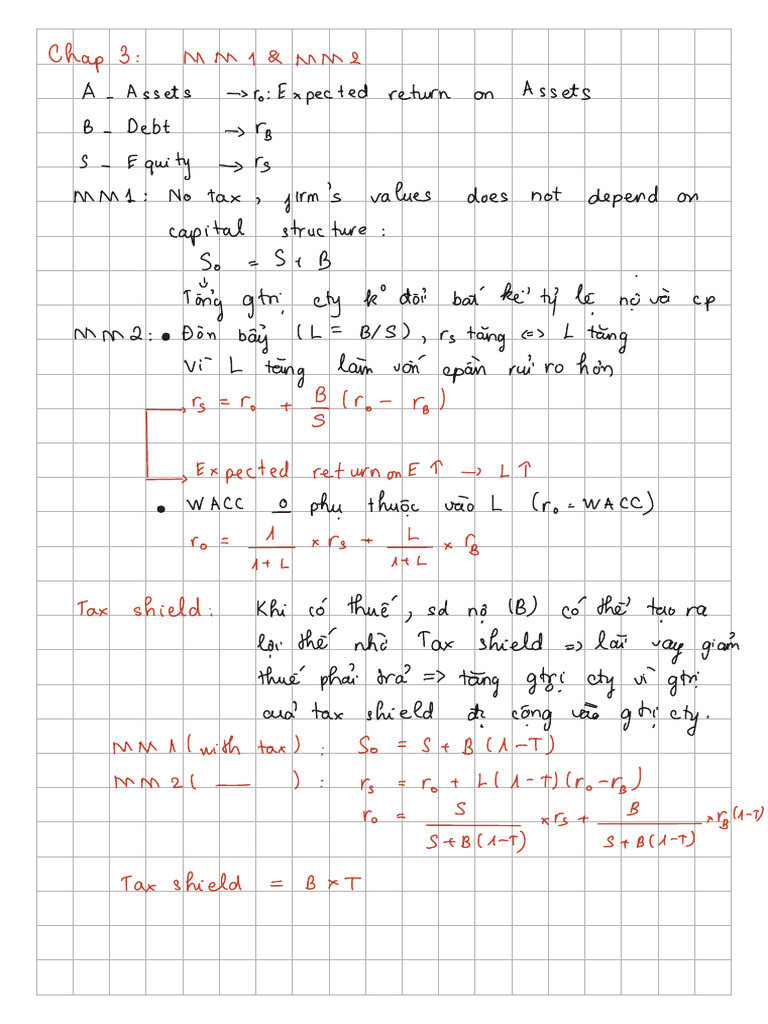 Chap 3: MM1 & MM2
A - Assets → r₀: Expected return on Assets
B - Debt → r_B
S - Equity → r_S
MM1: No tax, firm's values does not depend on
capital structure:
S₀ = S + B
↓
Tổng gtrị cty kº đổi bất kể tỷ lệ nợ và cp
MM2: • Đòn bẩy (L = B/S), r_S tăng <=> L tăng
Vì L tăng làm vốn cphần rủi ro hơn
→ r_S = r₀ + B/S (r₀ - r_B)
→ Expected return on E ↑ → L ↑
• WACC o phụ thuộc vào L (r₀ = WACC)
r₀ = 1/(1+L) × r_S + L/(1+L) × r_B
Tax shield: Khi có thuế, sd nợ (B) có thể tạo ra
lợi thế nhờ Tax shield => lãi vay giảm
thuế phải trả => tăng gtrị cty vì gtrị
của tax shield đc cộng vào gtrị cty.
MM1 (with tax): S₀ = S + B(1-T)
MM2 ( — ): r_S = r₀ + L(1-T)(r₀-r_B)
r₀ = S/(S+B(1-T)) × r_S + B/(S+B(1-T)) × r_B(1-T)
Tax shield = B × T